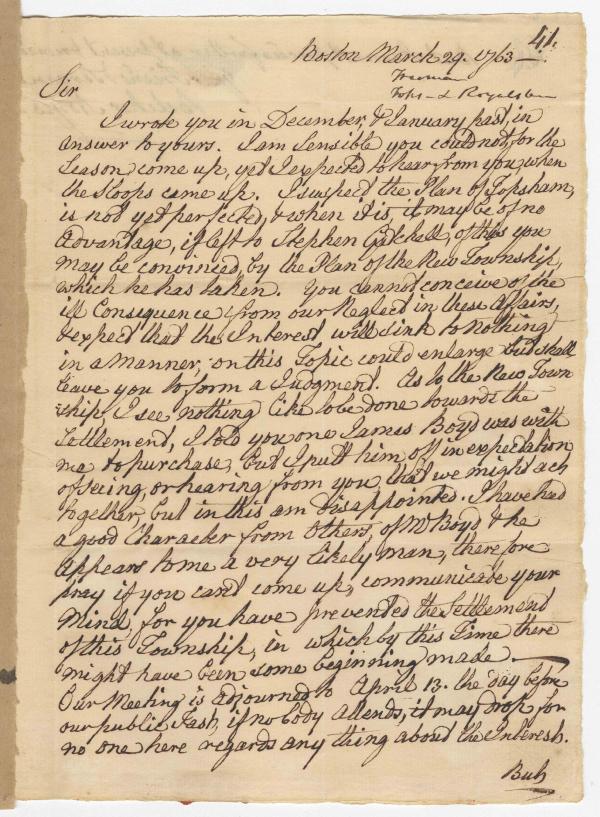 41.
Boston March 29. 1763 —
Sir
I wrote you in December, & January past, in
answer to yours. I am Sensible you could not, for the
Season, come up, yet I expected to hear from you, when
the Sloops came up. I suspect the Plan of Topsham,
is not yet perfected, & when it is, it may be of no
Advantage, if left to Stephen Getchell, of this you
may be convinced, by the Plan of the New Township,
which he has taken. You cannot conceive of the
ill Consequence from our Neglect in these Affairs,
& expect that the Interest will sink to nothing
in a Manner. on this Topic could enlarge but shall
leave you to form a Judgment. As to the New Town
ship I see nothing like to be done towards the
Settlement, I told you one James Boyd was with
me to purchase, but I putt him off in expectation
of seeing, or hearing from you, that we might act
together, but in this am disappointed. I have had
a good Character from Others, of Mr Boyd & he
Appears to me a very likely man, therefore
pray if you can't come up, communicate your
Mind, for you have prevented the Settlement
of this Township, in which by this Time there
might have been some beginning made. —
Our Meeting is adjourned to April 13. the day before
our public Fast, if no body attends, it may drop, for
no one here regards any thing about the Interest.
But